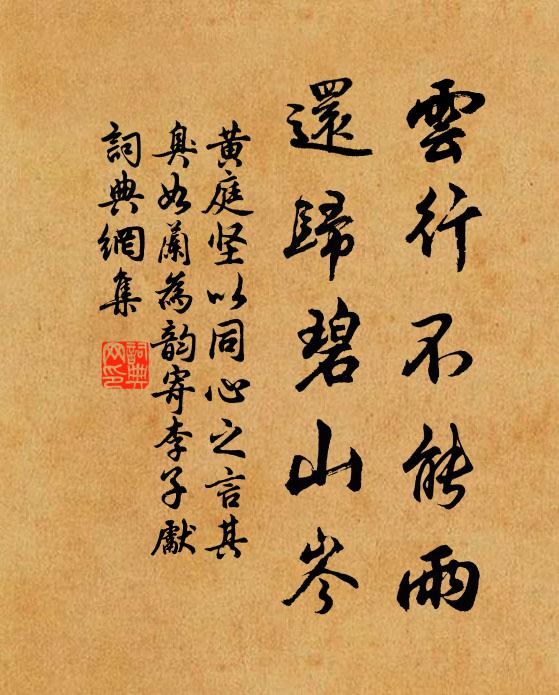 雲行不能雨
還歸碧山岑
黄庭坚以同心之言其
臭如蘭為韵寄李子獻
詞典網集
詞典
网印